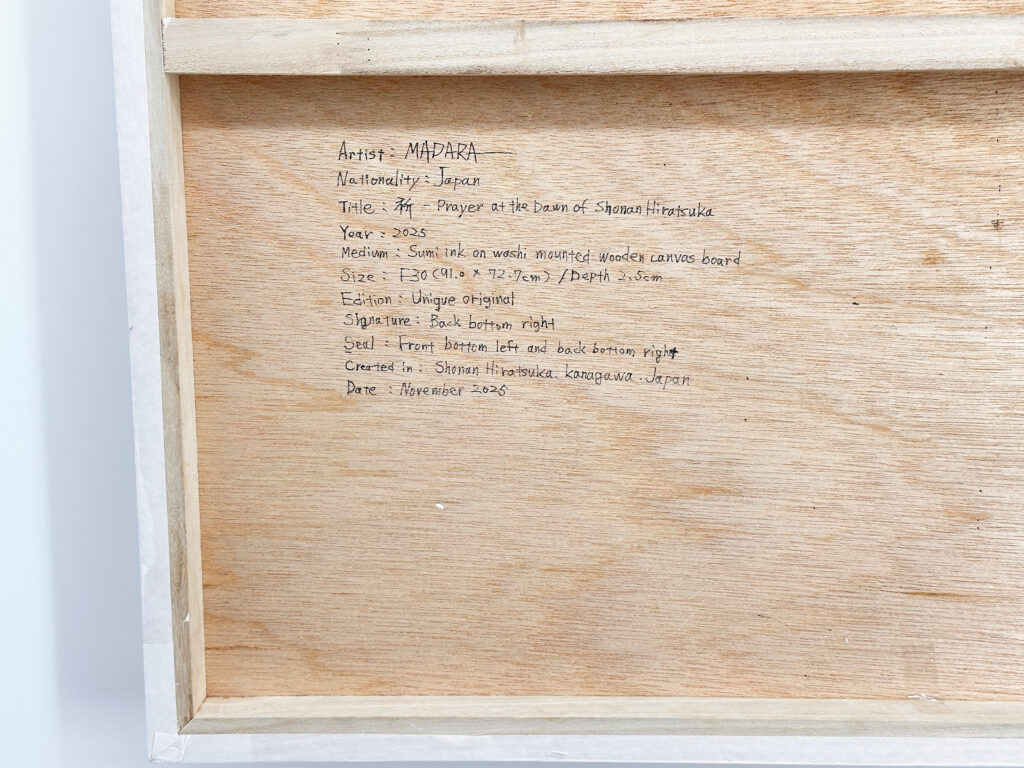 Artist : MADARA
Nationality : Japan
Title : 祈 - Prayer at the Dawn of Shonan Hiratsuka
Year : 2025
Medium : Sumi ink on washi mounted wooden canvas board
Size : F30 (91.0 × 72.7cm) / Depth 2.5cm
Edition : Unique original
Signature : Back bottom right
Seal : Front bottom left and back bottom right
Created in : Shonan Hiratsuka. kanagawa. Japan
Date : November 2025